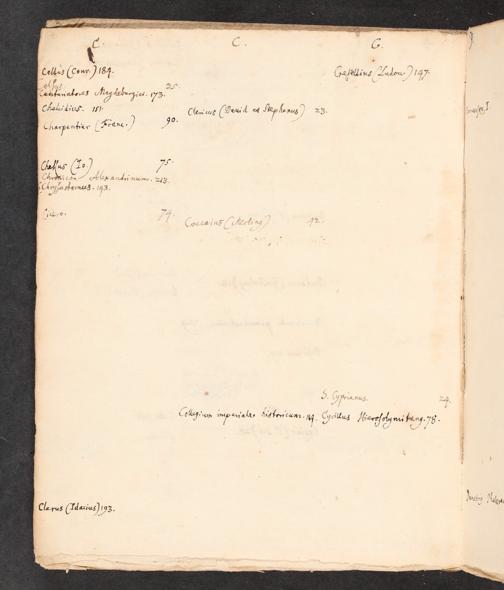 C. C. C.
Celtis (Conr.) 184.
Celsus. 25.
Centuriatores Magdeburgici. 173.
Chalcidius. 151.
Charpentier (Franc.) 90.
Chassus (Io.) 75.
Chronicon Alexandrinum. 213.
Chrysostomus. 193.
Cicero. 74.
Clarus (Idacius) 193.
Clericus (David et Stephanus) 23.
Coccaius (Merlinus) 42.
Collegium imperiale historicum. 149.
Crasellius (Ludov.) 147.
S. Cyprianus. 24.
Cyrillus Hierosolymitang. 78.